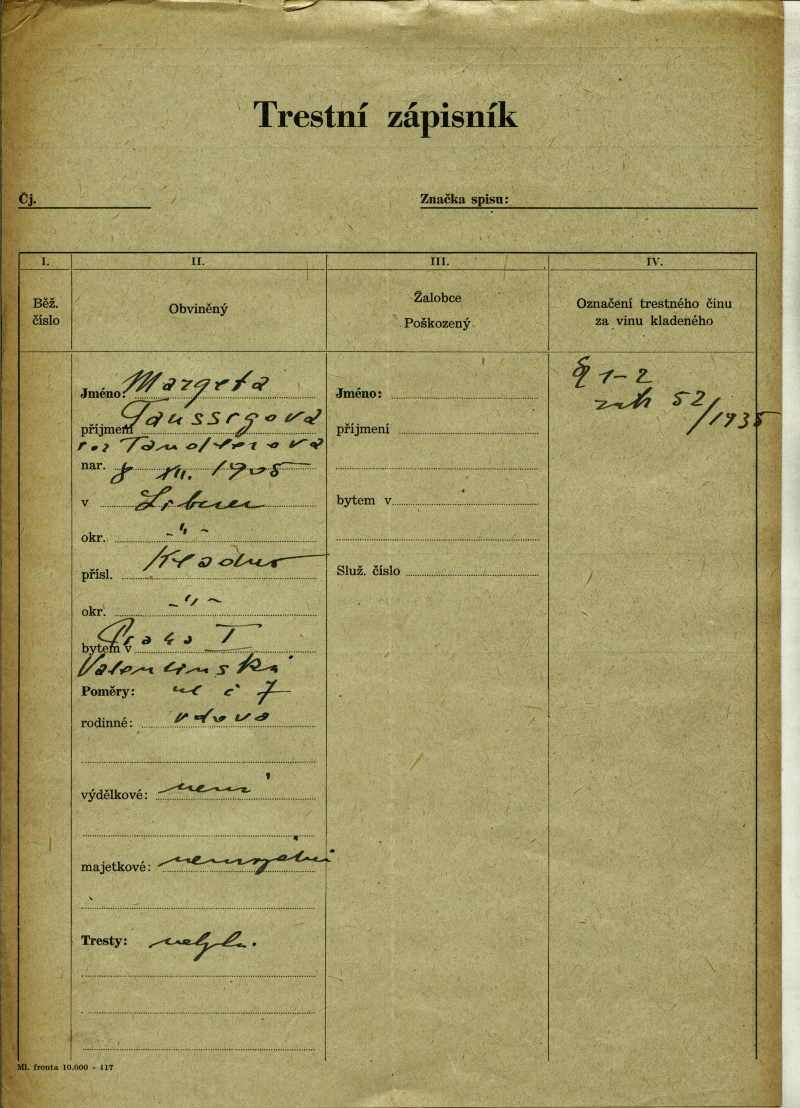 Trestní zápisník
Čj.
Značka spisu:
I.
II.
III.
IV.
Běž. číslo
Obviněný
Žalobce
Poškozený
Označení trestného činu
za vinu kladeného
Jméno: Margeta
příjmení Taussrgová
roz
nar. 8 XII. 1905
v
okr. -"-
přísl. Kladno
okr. -"-
bytem v Praha I
Valentinská
Poměry: ul č 7
rodinné: vdova
výdělkové: není
majetkové: nemajetná
Tresty:
Jméno:
příjmení
bytem v
Služ. číslo
§ 1-2
zák 52/1935
Ml. fronta 10.000 - 117